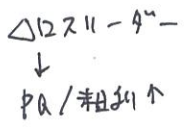 △ロスリーダー
↓
PQ/粗利↑